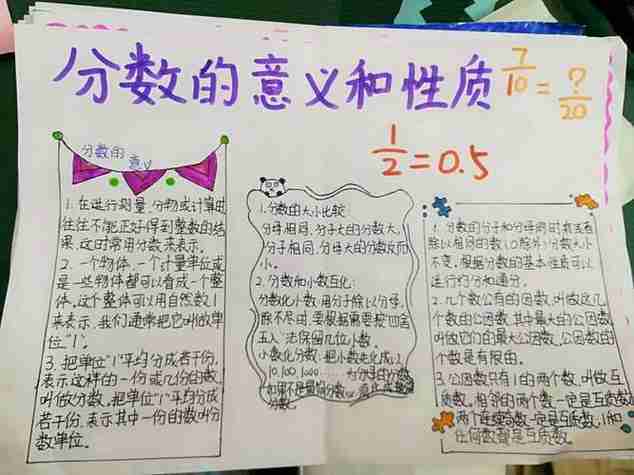 分数的意义和性质
7/10 = ?/20
1/2 = 0.5
分数的
意义
1. 在进行测量、分物或计算时
往往不能正好得到整数的结
果,这时常用分数来表示。
2. 一个物体、一个计量单位或
是一些物体都可以看成一个整
体,这个整体可以用自然数1
来表示,我们通常把它叫做单
位"1"。
3. 把单位"1"平均分成若干份,
表示这样的一份或几份的数,
叫做分数。把单位"1"平均分成
若干份,表示其中一份的数叫分
数单位。
1. 分数的大小比较
分母相同,分子大的分数大,
分子相同,分母大的分数反而
小。
2. 分数和小数互化:
分数化小数:用分子除以分母,
除不尽时,要根据需要按"四舍
五入"法保留几位小数。
小数化分数:把小数先化成以
10,100,1000……为分母的分数,
如果不是最简分数
分数。
1. 分数的分子和分母同时乘或者
除以相同的数(0除外)分数大小
不变。根据分数的基本性质可以
进行约分和通分。
2. 几个数公有的因数,叫做这几
个数的公因数,其中最大的公因数,
叫做它们的最大公因数,公因数的
个数是有限的。
3. 公因数只有1的两个数,叫做互
质数。相邻的两个数一定是互质数
两个连续奇数一定是互质数,1和
任何数都是互质数。